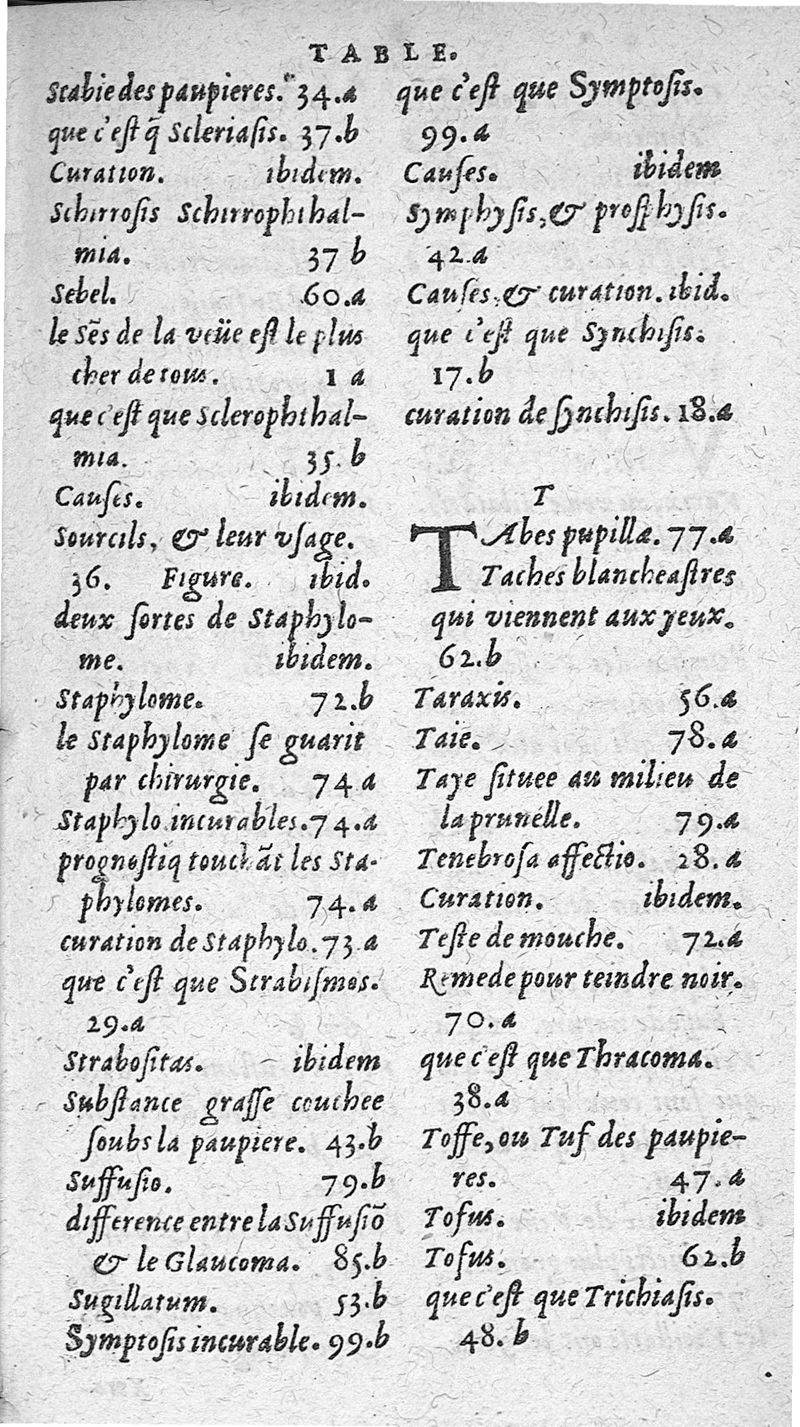 TABLE.
Scabie des paupieres. 34.a
que c'eſt q̃ Scleriaſis. 37.b
Curation. ibidem.
Schirroſis Schirrophthal-
mia. 37 b
Sebel. 60.a
le Sẽs de la veüe eſt le plus
cher de tous. 1 a
que c'eſt que Sclerophthal-
mia. 35. b
Cauſes. ibidem.
Sourcils, & leur vſage.
36. Figure. ibid.
deux ſortes de Staphylo-
me. ibidem.
Staphylome. 72.b
le Staphylome ſe guarit
par chirurgie. 74 a
Staphylo incurables. 74.a
prognoſtiq touchãt les Sta-
phylomes. 74.a
curation de Staphylo. 73 a
que c'eſt que Strabiſmos.
29.a
Straboſitas. ibidem
Subſtance graſſe couchee
ſoubs la paupiere. 43.b
Suffuſio. 79.b
difference entre la Suffuſiõ
& le Glaucoma. 85.b
Sugillatum. 53.b
Symptoſis incurable. 99.b
que c'eſt que Symptoſis.
99.a
Cauſes. ibidem
Symphyſis, & proſphyſis.
42.a
Cauſes, & curation. ibid.
que c'eſt que Synchiſis.
17.b
curation de ſynchiſis. 18.a
T
TAbes pupillæ. 77.a
Taches blancheaſtres
qui viennent aux yeux.
62.b
Taraxis. 56.a
Taie. 78.a
Taye ſituee au milieu de
la prunelle. 79.a
Tenebroſa affectio. 28.a
Curation. ibidem.
Teſte de mouche. 72.a
Remede pour teindre noir.
70.a
que c'eſt que Thracoma.
38.a
Toffe, ou Tuf des paupie-
res. 47.a
Tofus. ibidem
Tofus. 62.b
que c'eſt que Trichiaſis.
48. b